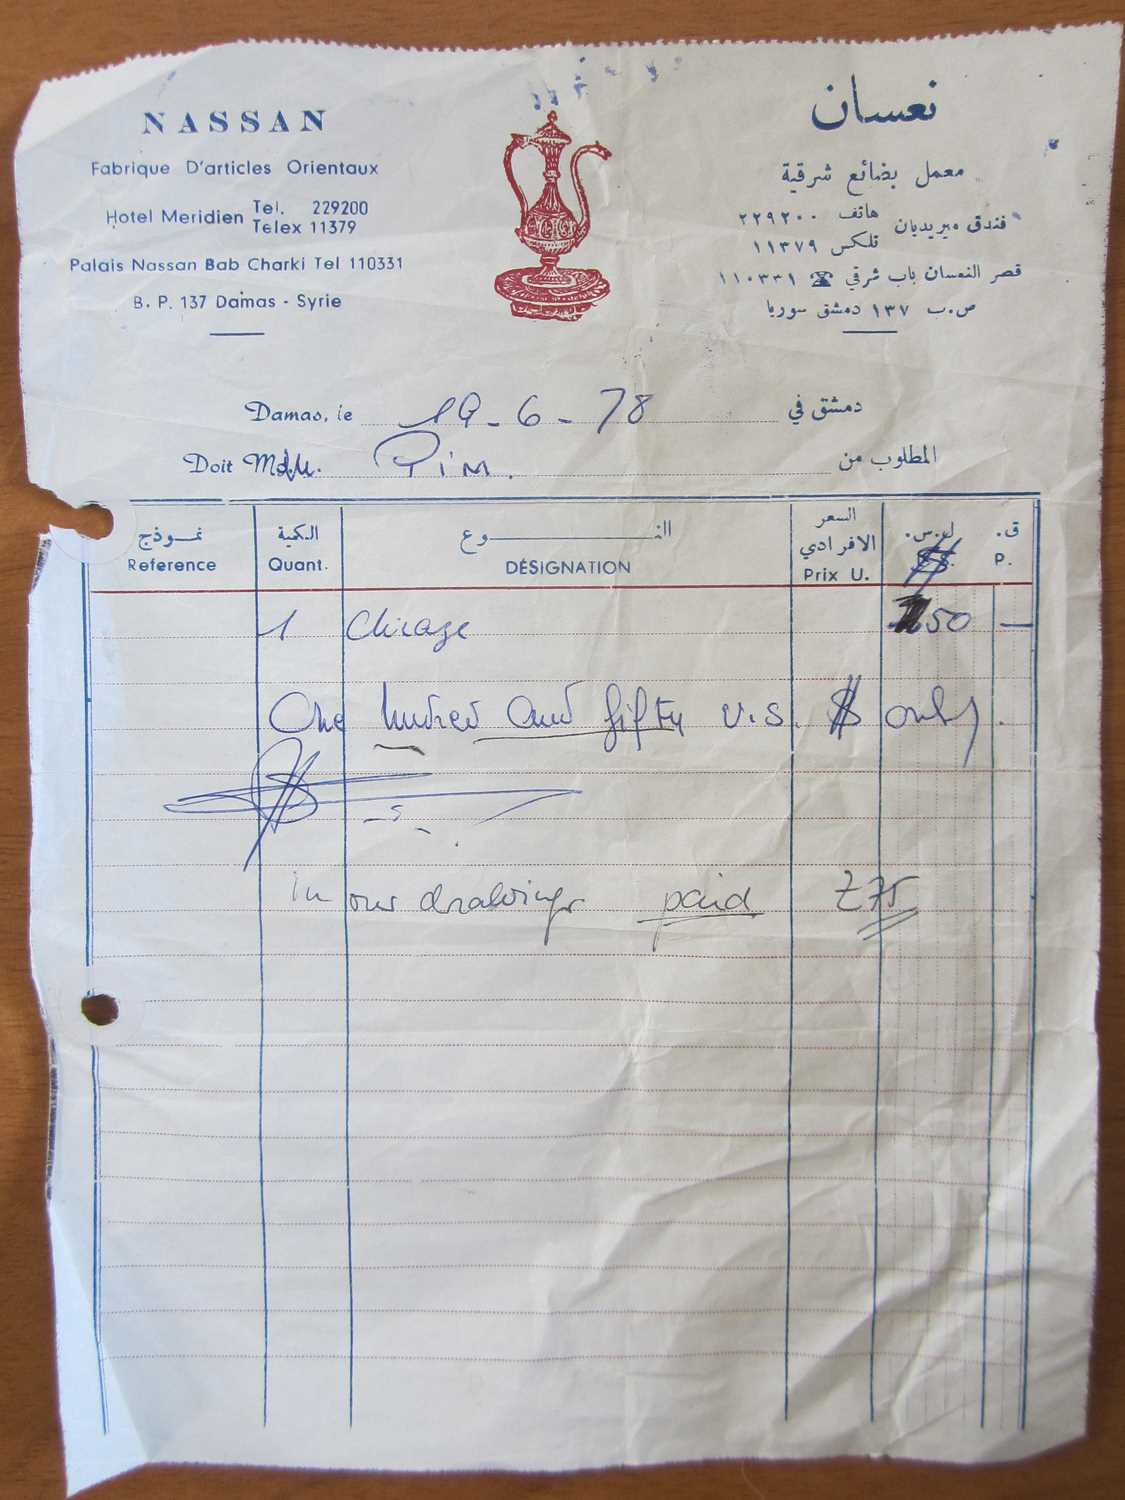 NASSAN
Fabrique D'articles Orientaux
Hotel Meridien Tel. 229200
Telex 11379
Palais Nassan Bab Charki Tel 110331
B. P. 137 Damas - Syrie
نعسان
معمل بضائع شرقية
فندق ميريديان هاتف ٢٢٩٢٠٠
تلكس ١١٣٧٩
قصر النعسان باب شرقي ☎ ١١٠٣٣١
ص.ب ١٣٧ دمشق سوريا
Damas, le 19-6-78 دمشق في
Doit Pim. المطلوب من
نموذج الكمية النوع السعر الافرادي ل.س. ق.
Reference Quant. DÉSIGNATION Prix U. $ P.
1 Chiraze 150 —
One hundred and fifty U.S. $ only.
in our drawings paid 275